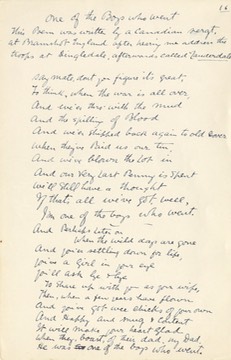 16
One of the Boys who went
This Poem was written by a Canadian sergt,
at Bramshot England after hearing me address the
troops at Dingledale, afterwards called
Say mate, dont you figure it's great,
To think, when the war is all over,
And we're thro with the mud
And the spilling of Blood
And we're shipped back again to old Dover
When they've Paid us our tin,
And we've blown the lot in
And our Very last Penny is spent
We'll Still have a thought
If that's all we've got, well,
I'm one of the boys who went.
And Perhaps later on
When the wild days are gone
And you're settling down for life
You've a Girl in your eye
You'll ask bye & bye
To share up with you as your wife,
Then, when a few years have flown
And you've got wee chicks of your own
And Happy and snug & Content
It will make your heart glad,
When they boast, of their dad, my Dad
He was one of the boys who went